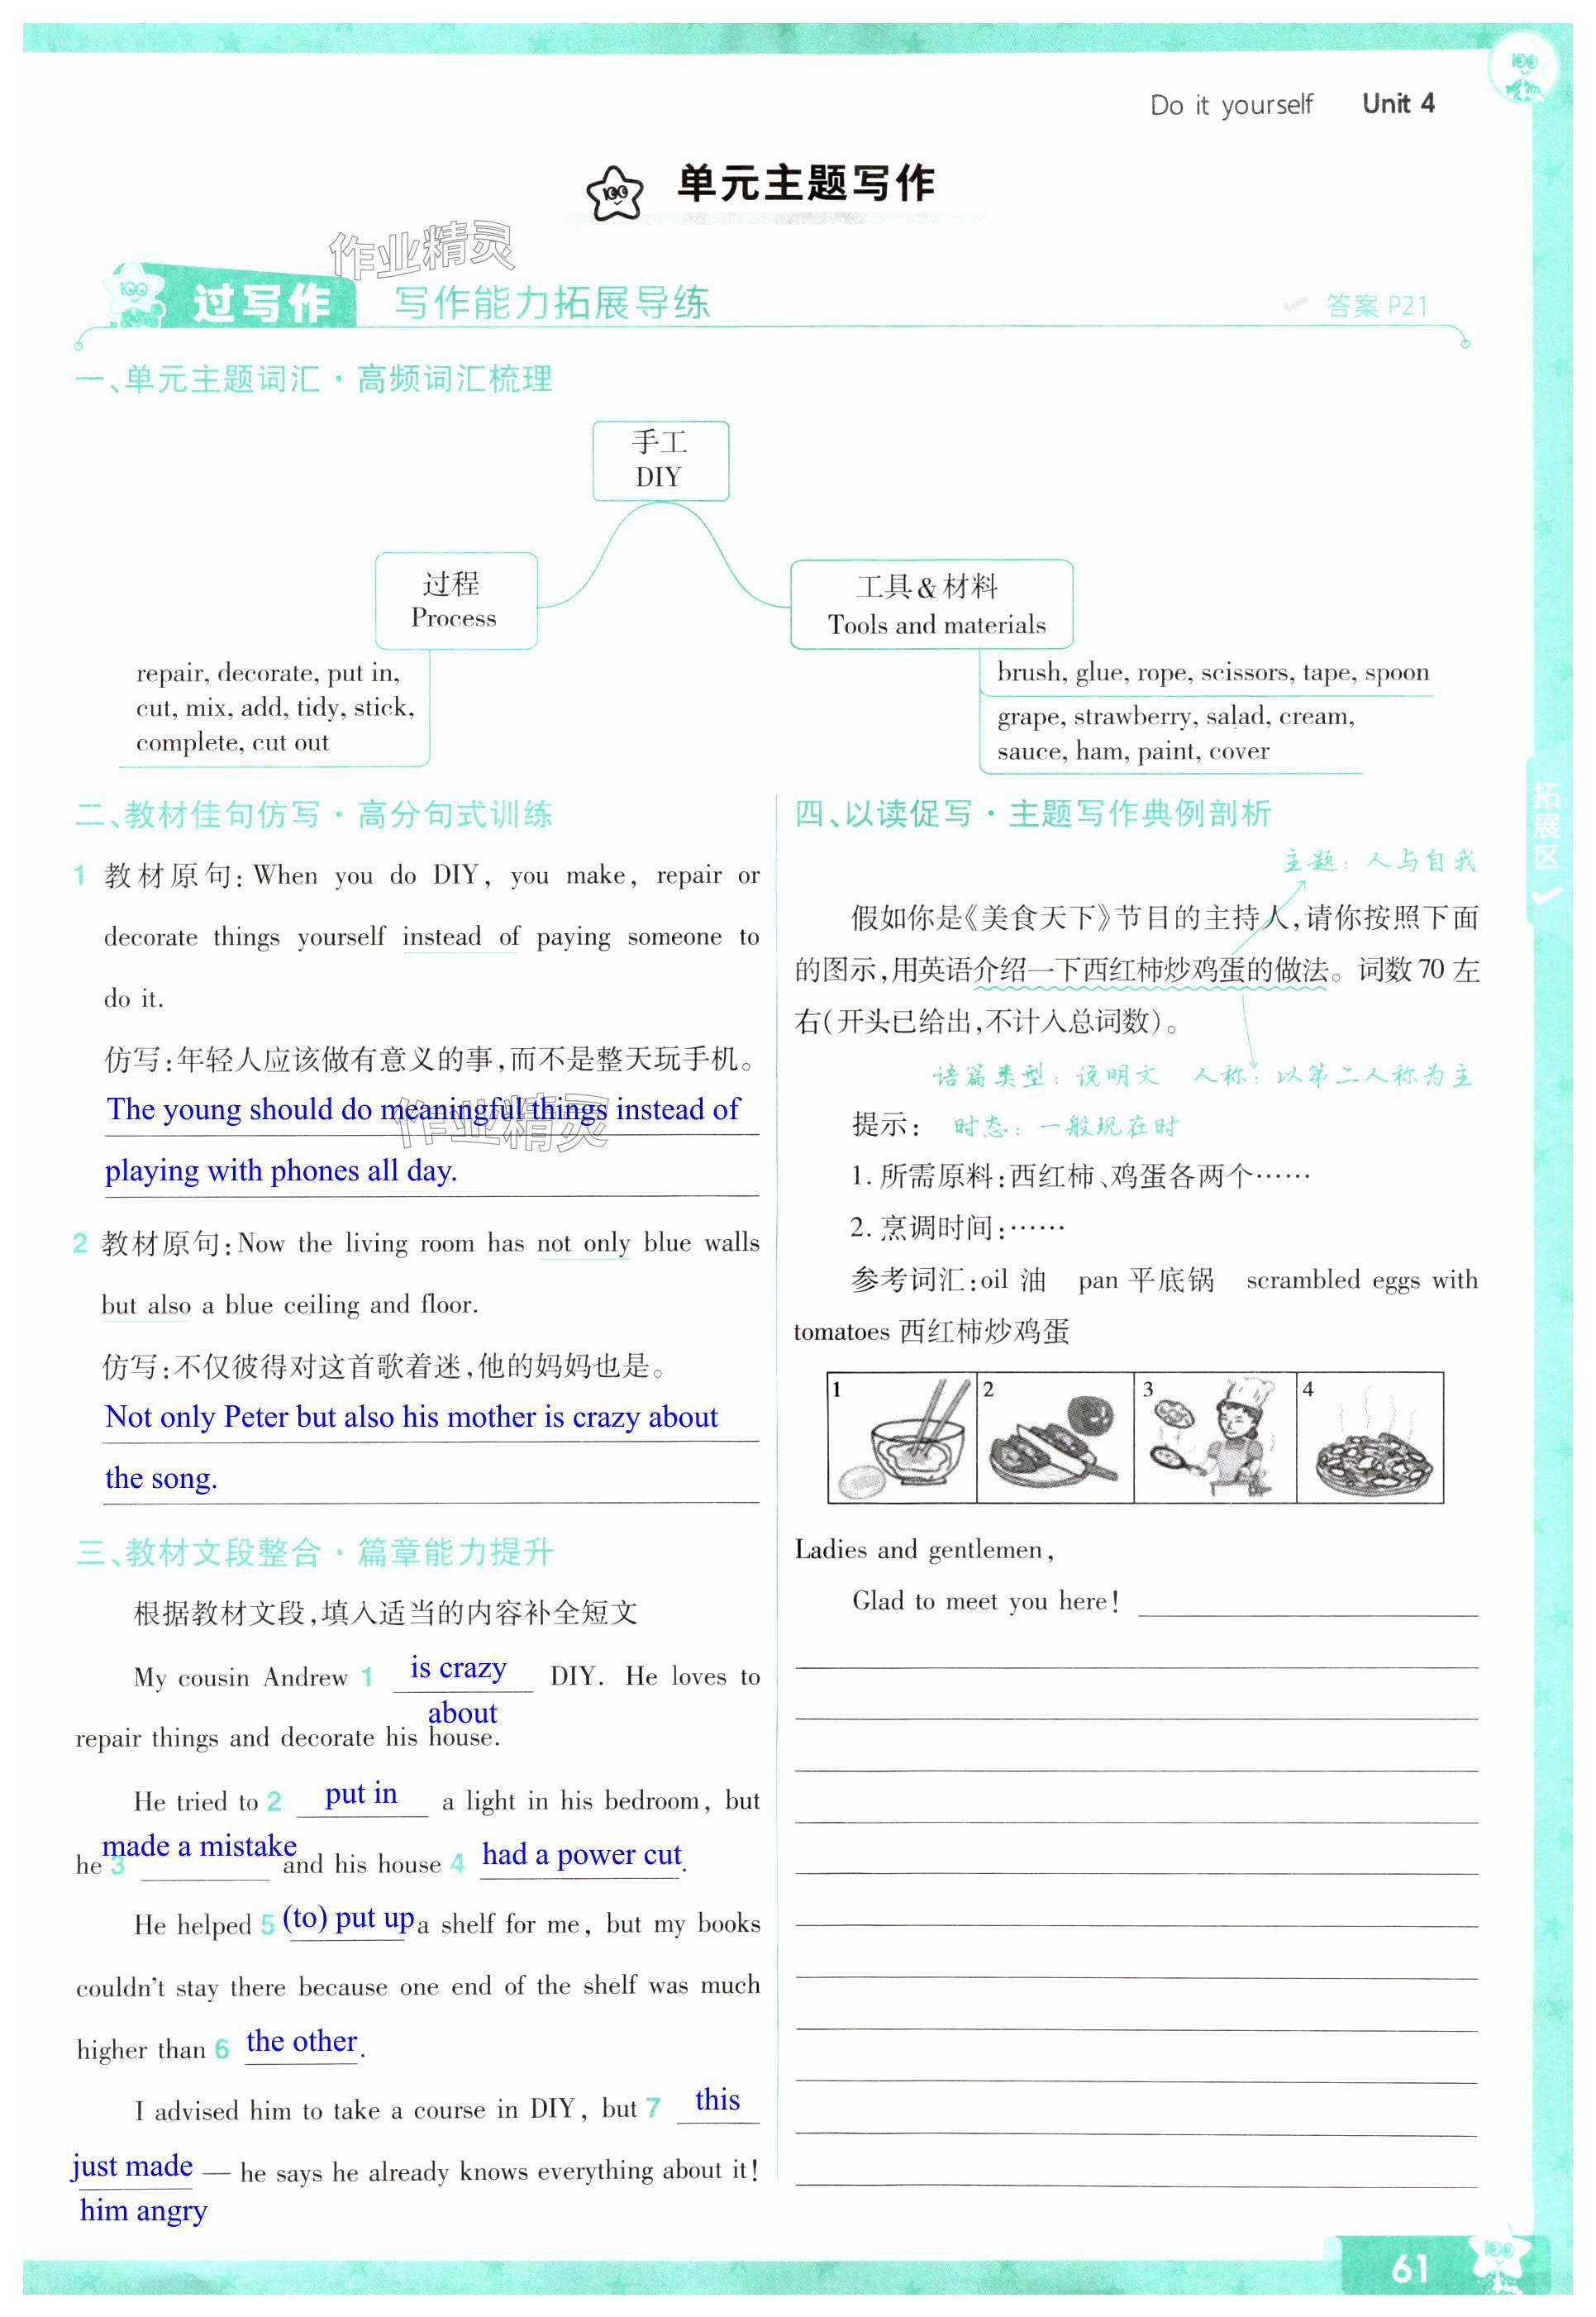 Do it yourself Unit 4
单元主题写作
作业精灵
过写作 写作能力拓展导练 答案 P21
一、单元主题词汇·高频词汇梳理
手工
DIY
过程
Process
工具&材料
Tools and materials
repair, decorate, put in,
cut, mix, add, tidy, stick,
complete, cut out
brush, glue, rope, scissors, tape, spoon
grape, strawberry, salad, cream,
sauce, ham, paint, cover
二、教材佳句仿写·高分句式训练
1 教材原句: When you do DIY, you make, repair or
decorate things yourself instead of paying someone to
do it.
仿写:年轻人应该做有意义的事,而不是整天玩手机。
The young should do meaningful things instead of
作业精灵
playing with phones all day.
2 教材原句:Now the living room has not only blue walls
but also a blue ceiling and floor.
仿写:不仅彼得对这首歌着迷,他的妈妈也是。
Not only Peter but also his mother is crazy about
the song.
三、教材文段整合·篇章能力提升
根据教材文段,填入适当的内容补全短文
My cousin Andrew 1 is crazy DIY. He loves to
about
repair things and decorate his house.
He tried to 2 put in a light in his bedroom, but
he 3 made a mistake and his house 4 had a power cut.
He helped 5 (to) put up a shelf for me, but my books
couldn't stay there because one end of the shelf was much
higher than 6 the other.
I advised him to take a course in DIY, but 7 this
just made — he says he already knows everything about it!
him angry
四、以读促写·主题写作典例剖析
主题: 人与自我
假如你是《美食天下》节目的主持人,请你按照下面
的图示,用英语介绍一下西红柿炒鸡蛋的做法。词数70左
右(开头已给出,不计入总词数)。
语篇类型: 说明文 人称: 以第二人称为主
提示: 时态: 一般现在时
1.所需原料:西红柿、鸡蛋各两个……
2.烹调时间:……
参考词汇:oil 油 pan 平底锅 scrambled eggs with
tomatoes 西红柿炒鸡蛋
1 2 3 4
Ladies and gentlemen,
Glad to meet you here!
拓展区
61